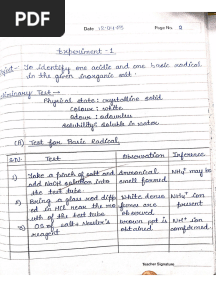 PDF
Date 18/04/
Page No. 2
Experiment - 1
To identify one acidic and one basic radical
in the given inorganic salt.
Test →
Physical state: crystalline solid
Colour: white
Odour: odourless
Solubility: Soluble in water
(A) Test for Basic Radical
S.N. Test Observation Inference
1) Take a pinch of salt and Ammoniacal NH4+ may be
add NaOH solution into smell formed
the test tube.
2) Bring a glass rod dipp white dense NH4+ ion
ed in HCl near the mo fumes are present
uth of the test tube observed
3) of salt + Nessler's brown ppt is NH+ ion
reagent obtained confirmed.
Teacher Signature